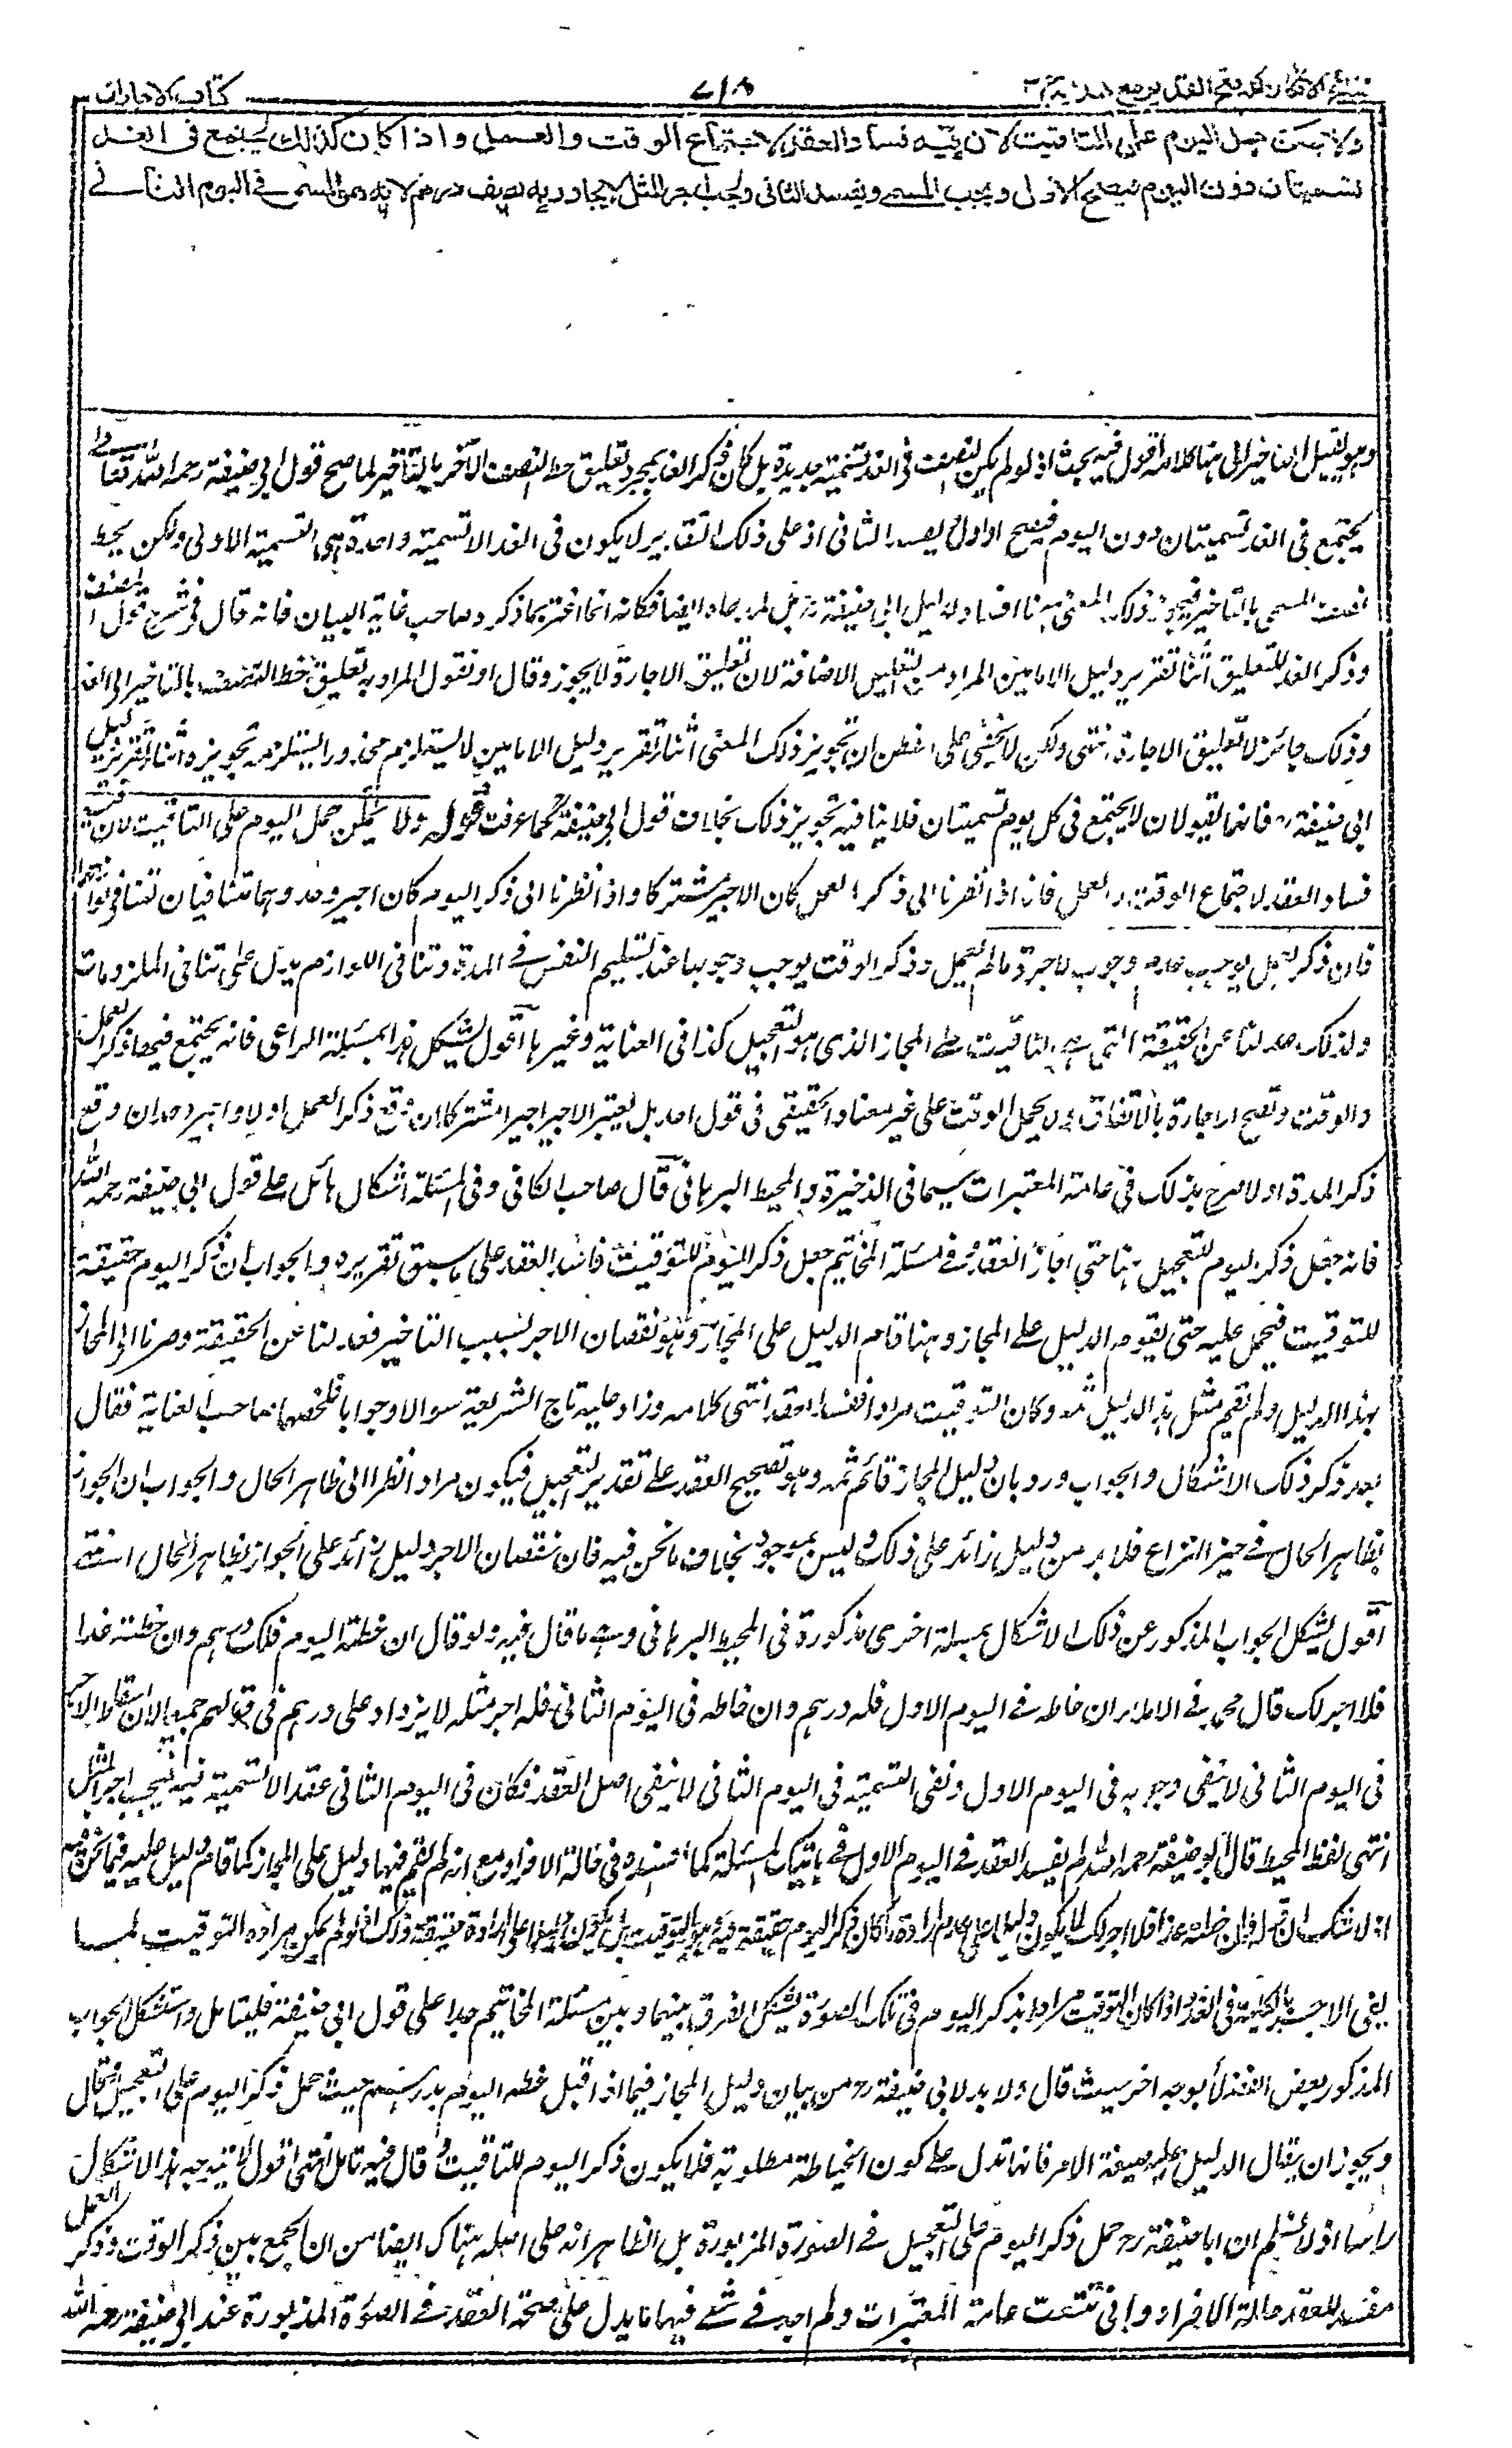 كتاب الاجارات
ولا يمكن حمل اليوم على التاقيت لان فيه فساد العقد لاجتماع الوقت والعمل واذا كان كذلك يجتمع في الغد
تسميتان دون اليوم فيصح الاول ويجب المسمى ويفسد الثاني ويجب اجر المثل لا يجاوز به نصف درهم لانه هو المسمى في اليوم الثاني
اقول فيه بحث اذ لو لم يكن النصف في الغد تسمية جديدة بل كان ذكر الغد لمجرد تعليق حط النصف الآخر بالتأخير لما صح قول ابي حنيفة رحمه الله تعالى
يجتمع في الغد تسميتان دون اليوم فيصح الاول ويفسد الثاني اذ على ذلك التقدير لا يكون في الغد الا تسمية واحدة هي التسمية الاولى ولكن يحط
نصف المسمى بالتاخير فتجويز ذلك المعنى هنا افساد لدليل ابي حنيفة بل لمدعاه ايضا فكانه انما اغتر بما ذكره صاحب غاية البيان فانه قال في شرح قول المصنف
وذكر الغد للتعليق اثناء تقرير دليل الامامين المراد من التعليق الاضافة لان تعليق الاجارة لا يجوز وقال او نقول المراد به تعليق حط النصف بالتاخير الى الغد
وذلك جائز لا تعليق الاجارة انتهى ولكن لا يخفى على الفطن ان تجويز ذلك المعنى اثناء تقرير دليل الامامين لا يستلزم محذورا يستلزمه تجويزه اثناء تقرير دليل
ابي حنيفة فانهما يقولان لا يجتمع في كل يوم تسميتان فلا ينافيه تجويز ذلك بخلاف قول ابي حنيفة كما عرفت قوله ولا يمكن حمل اليوم على التاقيت لان فيه
فساد العقد لاجتماع الوقت والعمل فانه اذا نظرنا الى ذكر العمل كان الاجير مشتركا واذا نظرنا الى ذكر اليوم كان اجير وحد وهما متنافيان لتنافي لوازمهما
فان ذكر العمل يوجب عدم وجوب الاجرة ما لم يعمل وذكر الوقت يوجب وجوبها عند تسليم النفس في المدة وتنافي اللوازم يدل على تنافي الملزومات
ولذلك عدلنا عن الحقيقة التي هي التاقيت الى المجاز الذي هو التعجيل كذا في العناية وغيرها اقول يشكل هذا بمسئلة الراعي فانه يجتمع فيها ذكر العمل
والوقت وتصح الاجارة بالاتفاق ولا يحمل الوقت على غير معناه الحقيقي في قول احد بل يعتبر الاجير اجيرا مشتركا ان وقع ذكر العمل اولا واجير وحد ان وقع
ذكر المدة اولا صرح بذلك في عامة المعتبرات سيما في الذخيرة والمحيط البرهاني قال صاحب الكافي وفي المسئلة اشكال هائل على قول ابي حنيفة رحمه الله
فانه جعل ذكر اليوم للتعجيل هنا حتى اجاز العقد وفي مسئلة المخاتيم جعل ذكر اليوم للتوقيت فافسد العقد على ما سبق تقريره والجواب ان ذكر اليوم حقيقة
للتوقيت فيحمل عليه حتى يقوم الدليل على المجاز وهنا قام الدليل على المجاز وهو نقصان الاجر بسبب التاخير فعدلنا عن الحقيقة وصرنا الى المجاز
بهذا الدليل ولم يقم مثل هذا الدليل ثمه وكان التوقيت مرادا ففسد العقد انتهى كلامه وزاد عليه تاج الشريعة سوالا وجوابا فلخصهما صاحب العناية فقال
بعد ذكر ذلك الاشكال والجواب ورد بان دليل المجاز قائم ثمه وهو تصحيح العقد على تقدير التعجيل فيكون مرادا نظرا الى ظاهر الحال والجواب ان الجواز
بظاهر الحال في حيز النزاع فلا بد من دليل زائد على ذلك وليس بموجود بخلاف ما نحن فيه فان نقصان الاجر دليل زائد على الجواز بظاهر الحال انتهى
اقول يشكل الجواب المذكور عن ذلك الاشكال بمسئلة اخرى مذكورة في المحيط البرهاني وهي ما قال فيه ولو قال ان خطته اليوم فلك درهم وان خطته غدا
فلا اجر لك قال محمد في الاملاء ان خاطه في اليوم الاول فله درهم وان خاطه في اليوم الثاني فله اجر مثله لا يزداد على درهم في قولهم جميعا لان اسقاط الاجر
في اليوم الثاني لا ينفي وجوبه في اليوم الاول ونفي التسمية في اليوم الثاني لا ينفي اصل العقد فكان في اليوم الثاني عقد لا تسمية فيه فيجب اجر المثل
انتهى لفظ المحيط قال ابو حنيفة رحمه الله لم يفسد العقد في اليوم الاول في هاتيك المسئلة كما افسده في حالة الافراد مع انه لم يقم فيها دليل على المجاز كما قام دليل عليه فيما نحن فيه
لنفي الاجر بالكلية في الغد واذا كان التوقيت مرادا بذكر اليوم في تلك الصورة يشكل الفرق بينها وبين مسئلة المخاتيم جدا على قول ابي حنيفة فليتامل واستشكل الجواب
المذكور بعض الفضلاء بوجه اخر حيث قال ولا بد لابي حنيفة من بيان دليل المجاز فيما اذا قيل خطه اليوم بدرهم حيث حمل ذكر اليوم على التعجيل قال
ويجوز ان يقال الدليل عليه صيغة الامر فانها تدل على كون الخياطة مطلوبة فلا يكون ذكر اليوم للتاقيت وقال فيه تامل انتهى اقول لا يتوجه هذا الاشكال
راسا اذ لا نسلم ان ابا حنيفة حمل ذكر اليوم على التعجيل في الصورة المزبورة بل الظاهر انه على اصله هناك ايضا من ان الجمع بين ذكر الوقت وذكر العمل
مفسد للعقد حالة الافراد واني تتبعت عامة المعتبرات ولم اجد في شئ فيها ما يدل على صحة العقد في الصورة المذبورة عند ابي حنيفة رحمه الله